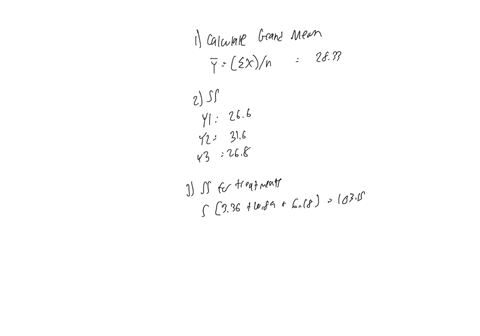 1) Calculate Grand Mean
Ȳ = (ΣX)/n = 28.33
2) SS
Y1 = 26.6
Y2 = 31.6
Y3 = 26.8
3) SS for treatments
5 (3.36 + 10.89 + 6.18) = 103.55